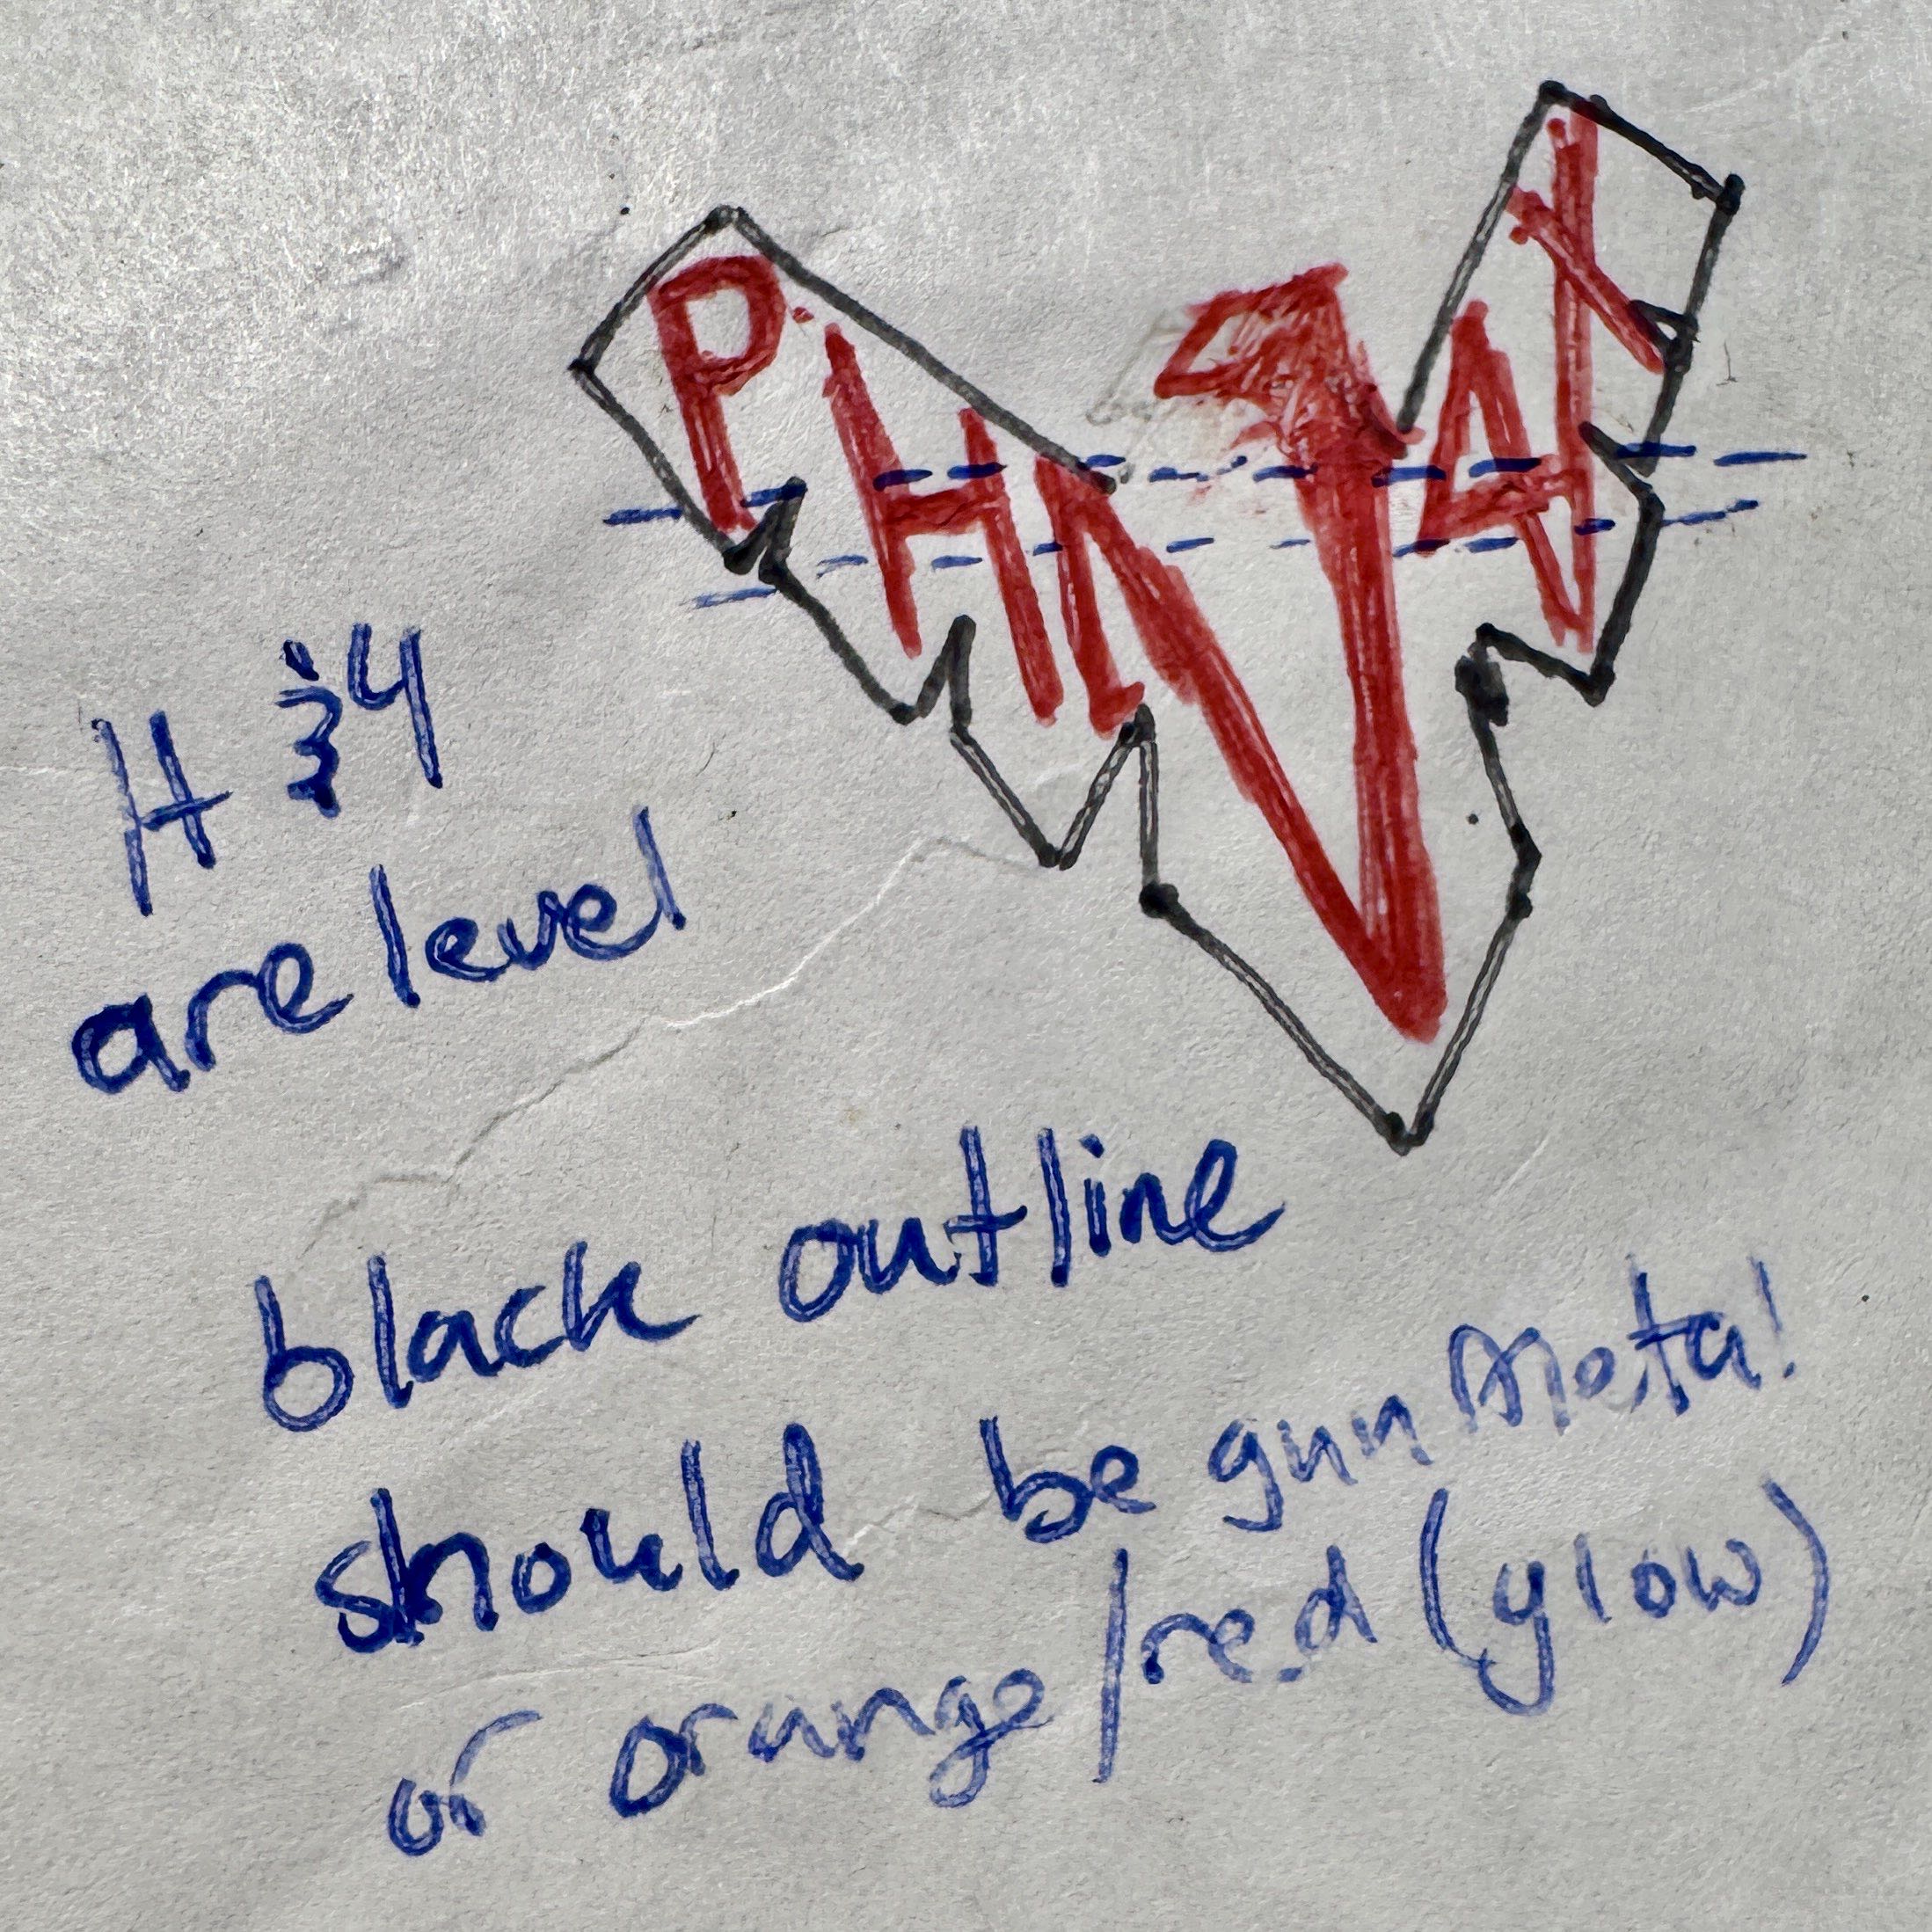 H & 4
are level
black outline
should be gun metal
or orange/red (glow)